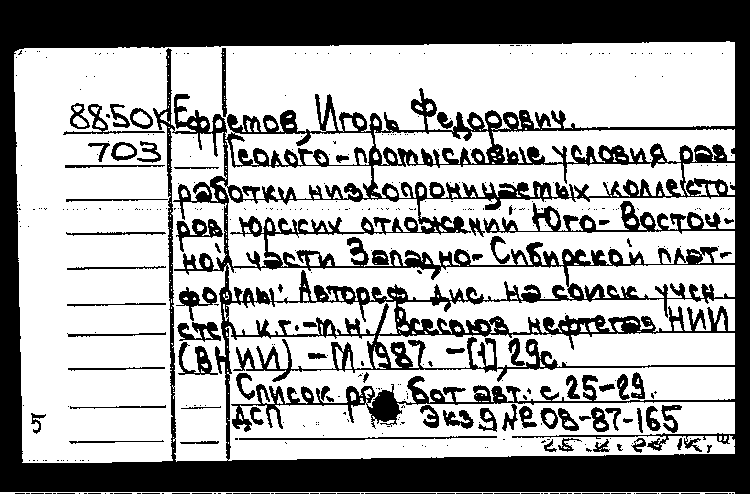 88-50К Ефремов, Игорь Федорович.
703 Геолого-промысловые условия раз-
работки низкопроницаемых коллекто-
ров юрских отложений Юго-Восточ-
ной части Западно-Сибирской плат-
формы: Автореф. дис. на соиск. учен.
степ. к.г.-м.н. / Всесоюз. нефтегаз. НИИ
(ВНИИ). - М. 1987. - [1], 29 с.
Список работ авт.: с. 25-29.
5 ДСП Экз. 9 № 08-87-165